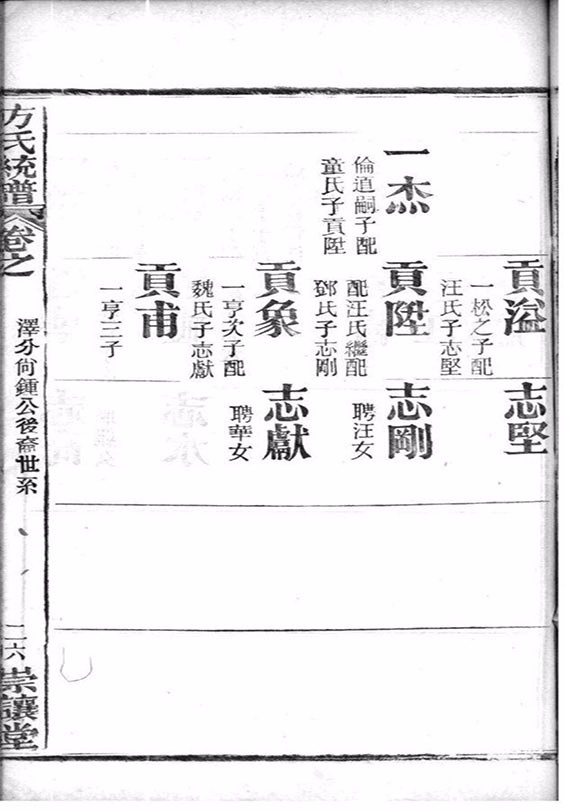 貢溢
一松之子配
汪氏子志堅
志堅
一杰
倫道嗣子配
童氏子貢陞
貢陞
配汪氏繼配
鄧氏子志剛
志剛
聘汪女
貢象
一亨次子配
魏氏子志獻
志獻
聘華女
貢甫
一亨三子
方氏統譜
卷之
澤分尙鍾公後裔世系
二六
崇讓堂